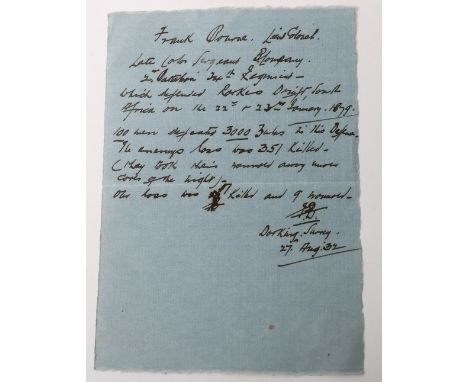 Frank Bourne. Lieut Colonel.
Late Color Sergeant B Company.
2nd Battalion 24th Regiment -
Which defended Rorkes Drift, South
Africa on the 22nd & 23rd January. 1879.
100 men defeated 3000 Zulus in this Defence
The enemys loss was 351 killed -
(They took their wounded away under
cover of the night) -
Our loss was 17 killed and 9 wounded -
Dorking. Surrey.
27. Aug. 32